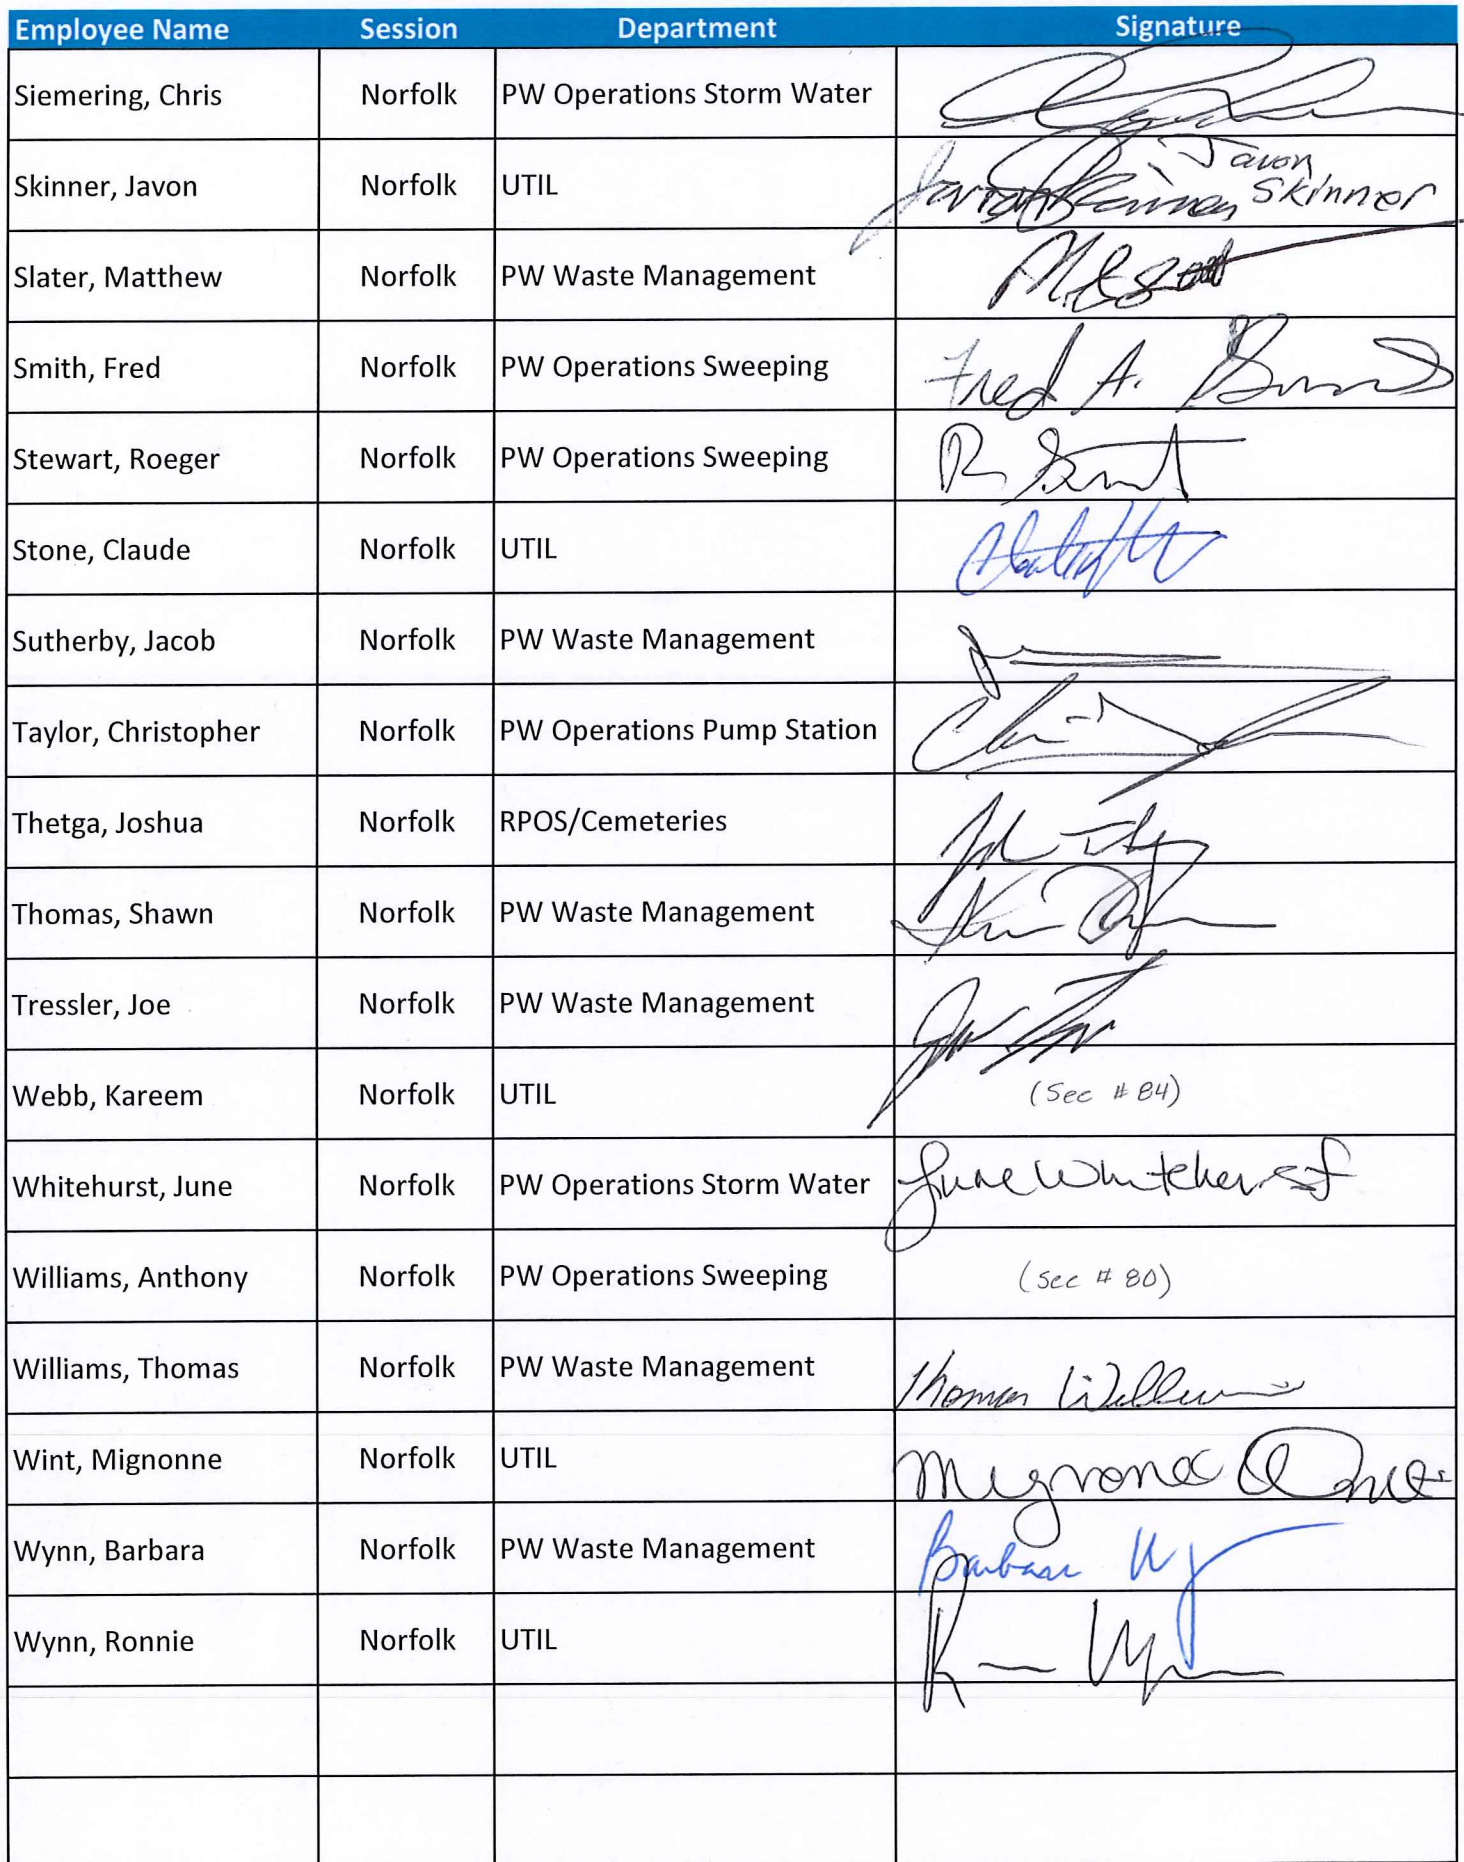 Employee Name Session Department Signature
Siemering, Chris Norfolk PW Operations Storm Water
Skinner, Javon Norfolk UTIL Javon Skinner Javon
Skinner
Slater, Matthew Norfolk PW Waste Management
Smith, Fred Norfolk PW Operations Sweeping Fred A.
Stewart, Roeger Norfolk PW Operations Sweeping R
Stone, Claude Norfolk UTIL
Sutherby, Jacob Norfolk PW Waste Management
Taylor, Christopher Norfolk PW Operations Pump Station
Thetga, Joshua Norfolk RPOS/Cemeteries
Thomas, Shawn Norfolk PW Waste Management
Tressler, Joe Norfolk PW Waste Management
Webb, Kareem Norfolk UTIL (See # 84)
Whitehurst, June Norfolk PW Operations Storm Water June Whitehurst
Williams, Anthony Norfolk PW Operations Sweeping (see # 80)
Williams, Thomas Norfolk PW Waste Management Thomas Williams
Wint, Mignonne Norfolk UTIL Mignonne
Wynn, Barbara Norfolk PW Waste Management Barbara
Wynn, Ronnie Norfolk UTIL